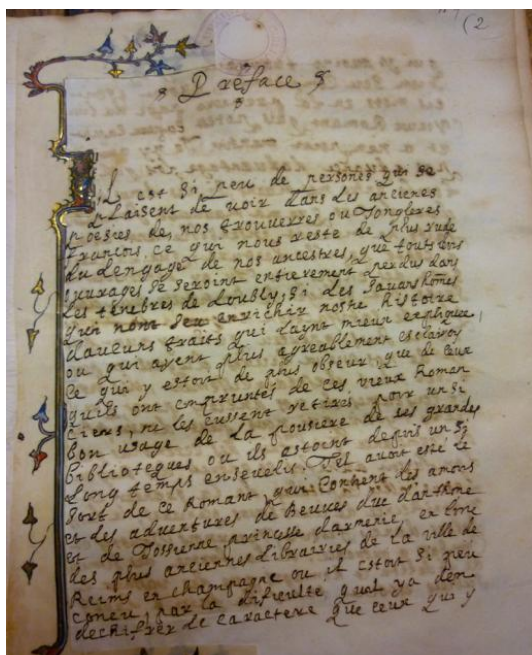 (2
Preface
Il est si peu de persones qui se
plaisent de voir dans les anciènes
poësies de nos trouverres ou Jongleres
francois, ce qui nous reste de plus rude
du lengage de nos ancestres, que touts ces
ouvrages se seroint entierement perdus dans
les ténebres de l'oubly, si des sauans homes
qui n'ont seu enrichir nostre histoire
d'aucuns traits qui l'aynt mieux expliquée,
ou qui ayent plus agreablement esclaircy
ce qui y estoit de plus obscur, que de ceux
qu'ils ont empruntés de ces vieux Roman
ciers, ne les eussent retirés pour un si
bon usage de la pousiere de ses grandes
biblioteques ou ils estoint depuis un si
long temps ensevelis. Tel auoit esté le
sort de ce Romant, qui contient les amors
et des adventures de Beuves duc d'anthone
et de Jossienne princesse d'armenie, en l'une
des plus anciennes librairies de la ville de
Reims en champagne ou il estoit si peu
coneu, par la dificulté qu'il ya d'en
dechifrer le caractere que ceux qui y